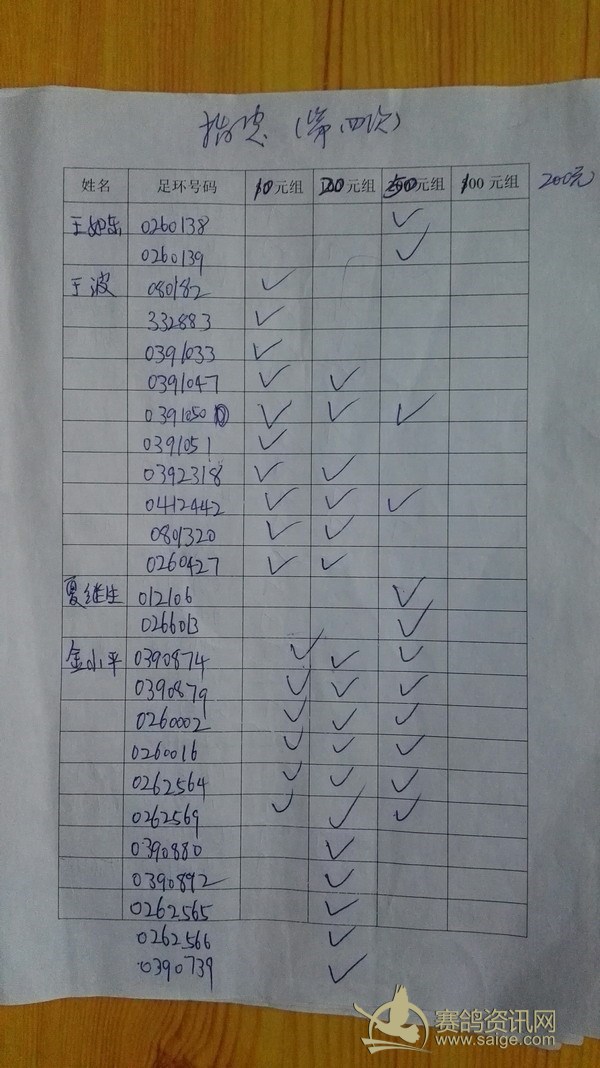 指定（第四次）
姓名 足环号码 10元组 元组 50元组 100元组 200元
王如乐 0260138 ✓
0260139 ✓
于波 080182 ✓
332883 ✓
0391033 ✓
0391047 ✓ ✓
0391050 ✓ ✓ ✓
0391051 ✓
0392318 ✓ ✓
0412442 ✓ ✓ ✓
0801320 ✓ ✓
0260427 ✓ ✓
夏继生 012106 ✓
0266013 ✓
金小平 0390874 ✓ ✓ ✓
0390879 ✓ ✓ ✓
0260002 ✓ ✓ ✓
0260016 ✓ ✓ ✓
0262564 ✓ ✓ ✓
0262569 ✓ ✓ ✓
0390880 ✓
0390892 ✓
0262565 ✓
0262566 ✓
0390739 ✓
赛鸽资讯网
www.saige.com